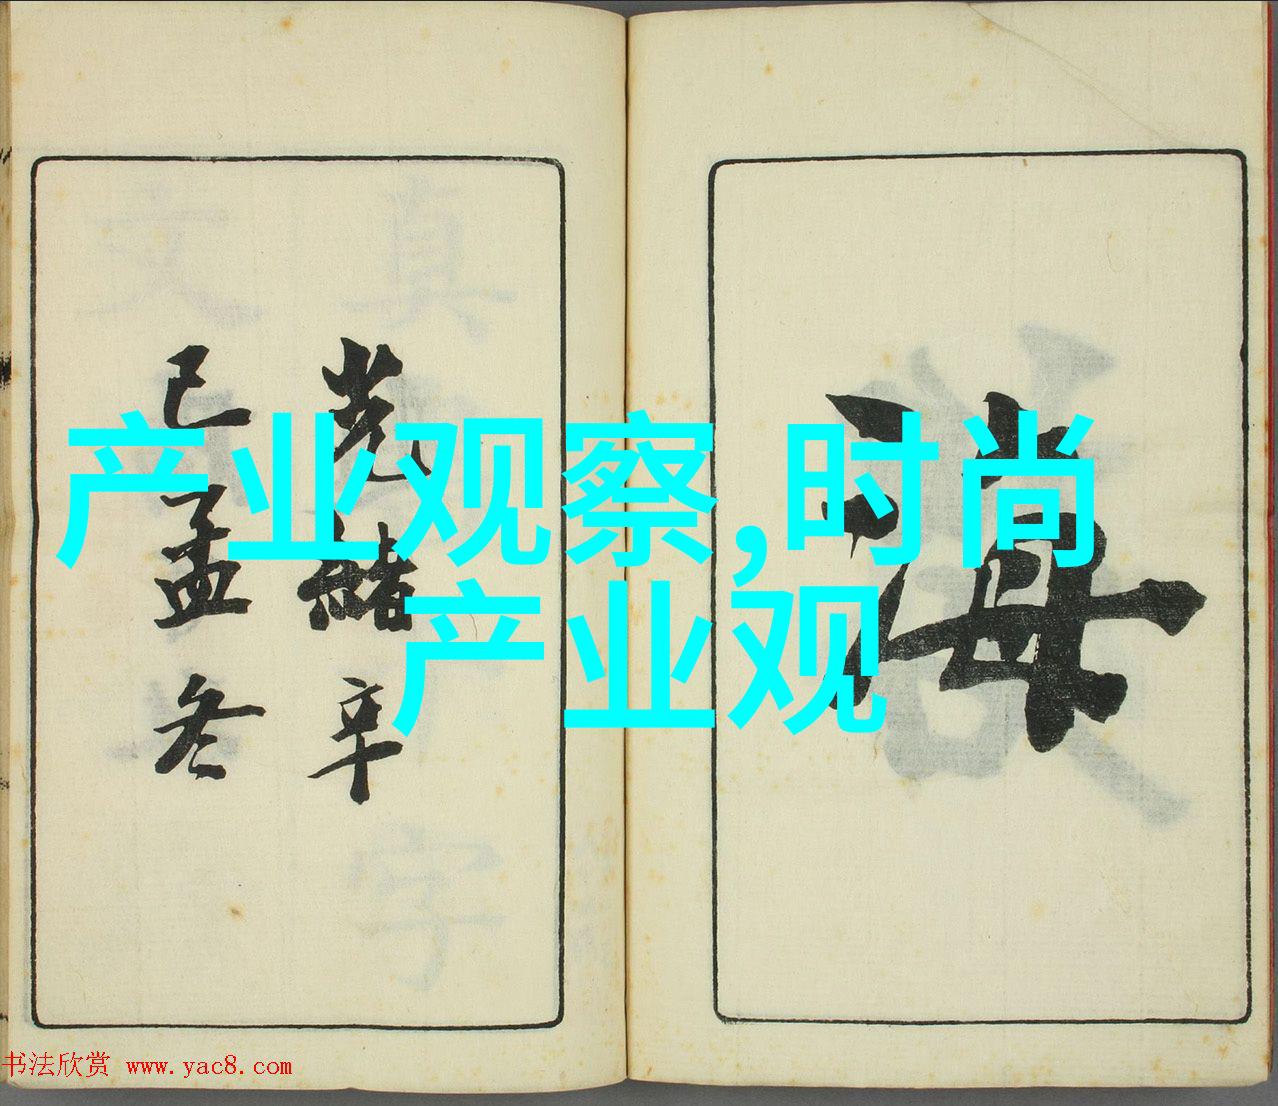 产业观察,时尚
产业观
海
光緒辛
巳孟冬
书法欣赏 www.yac8.com